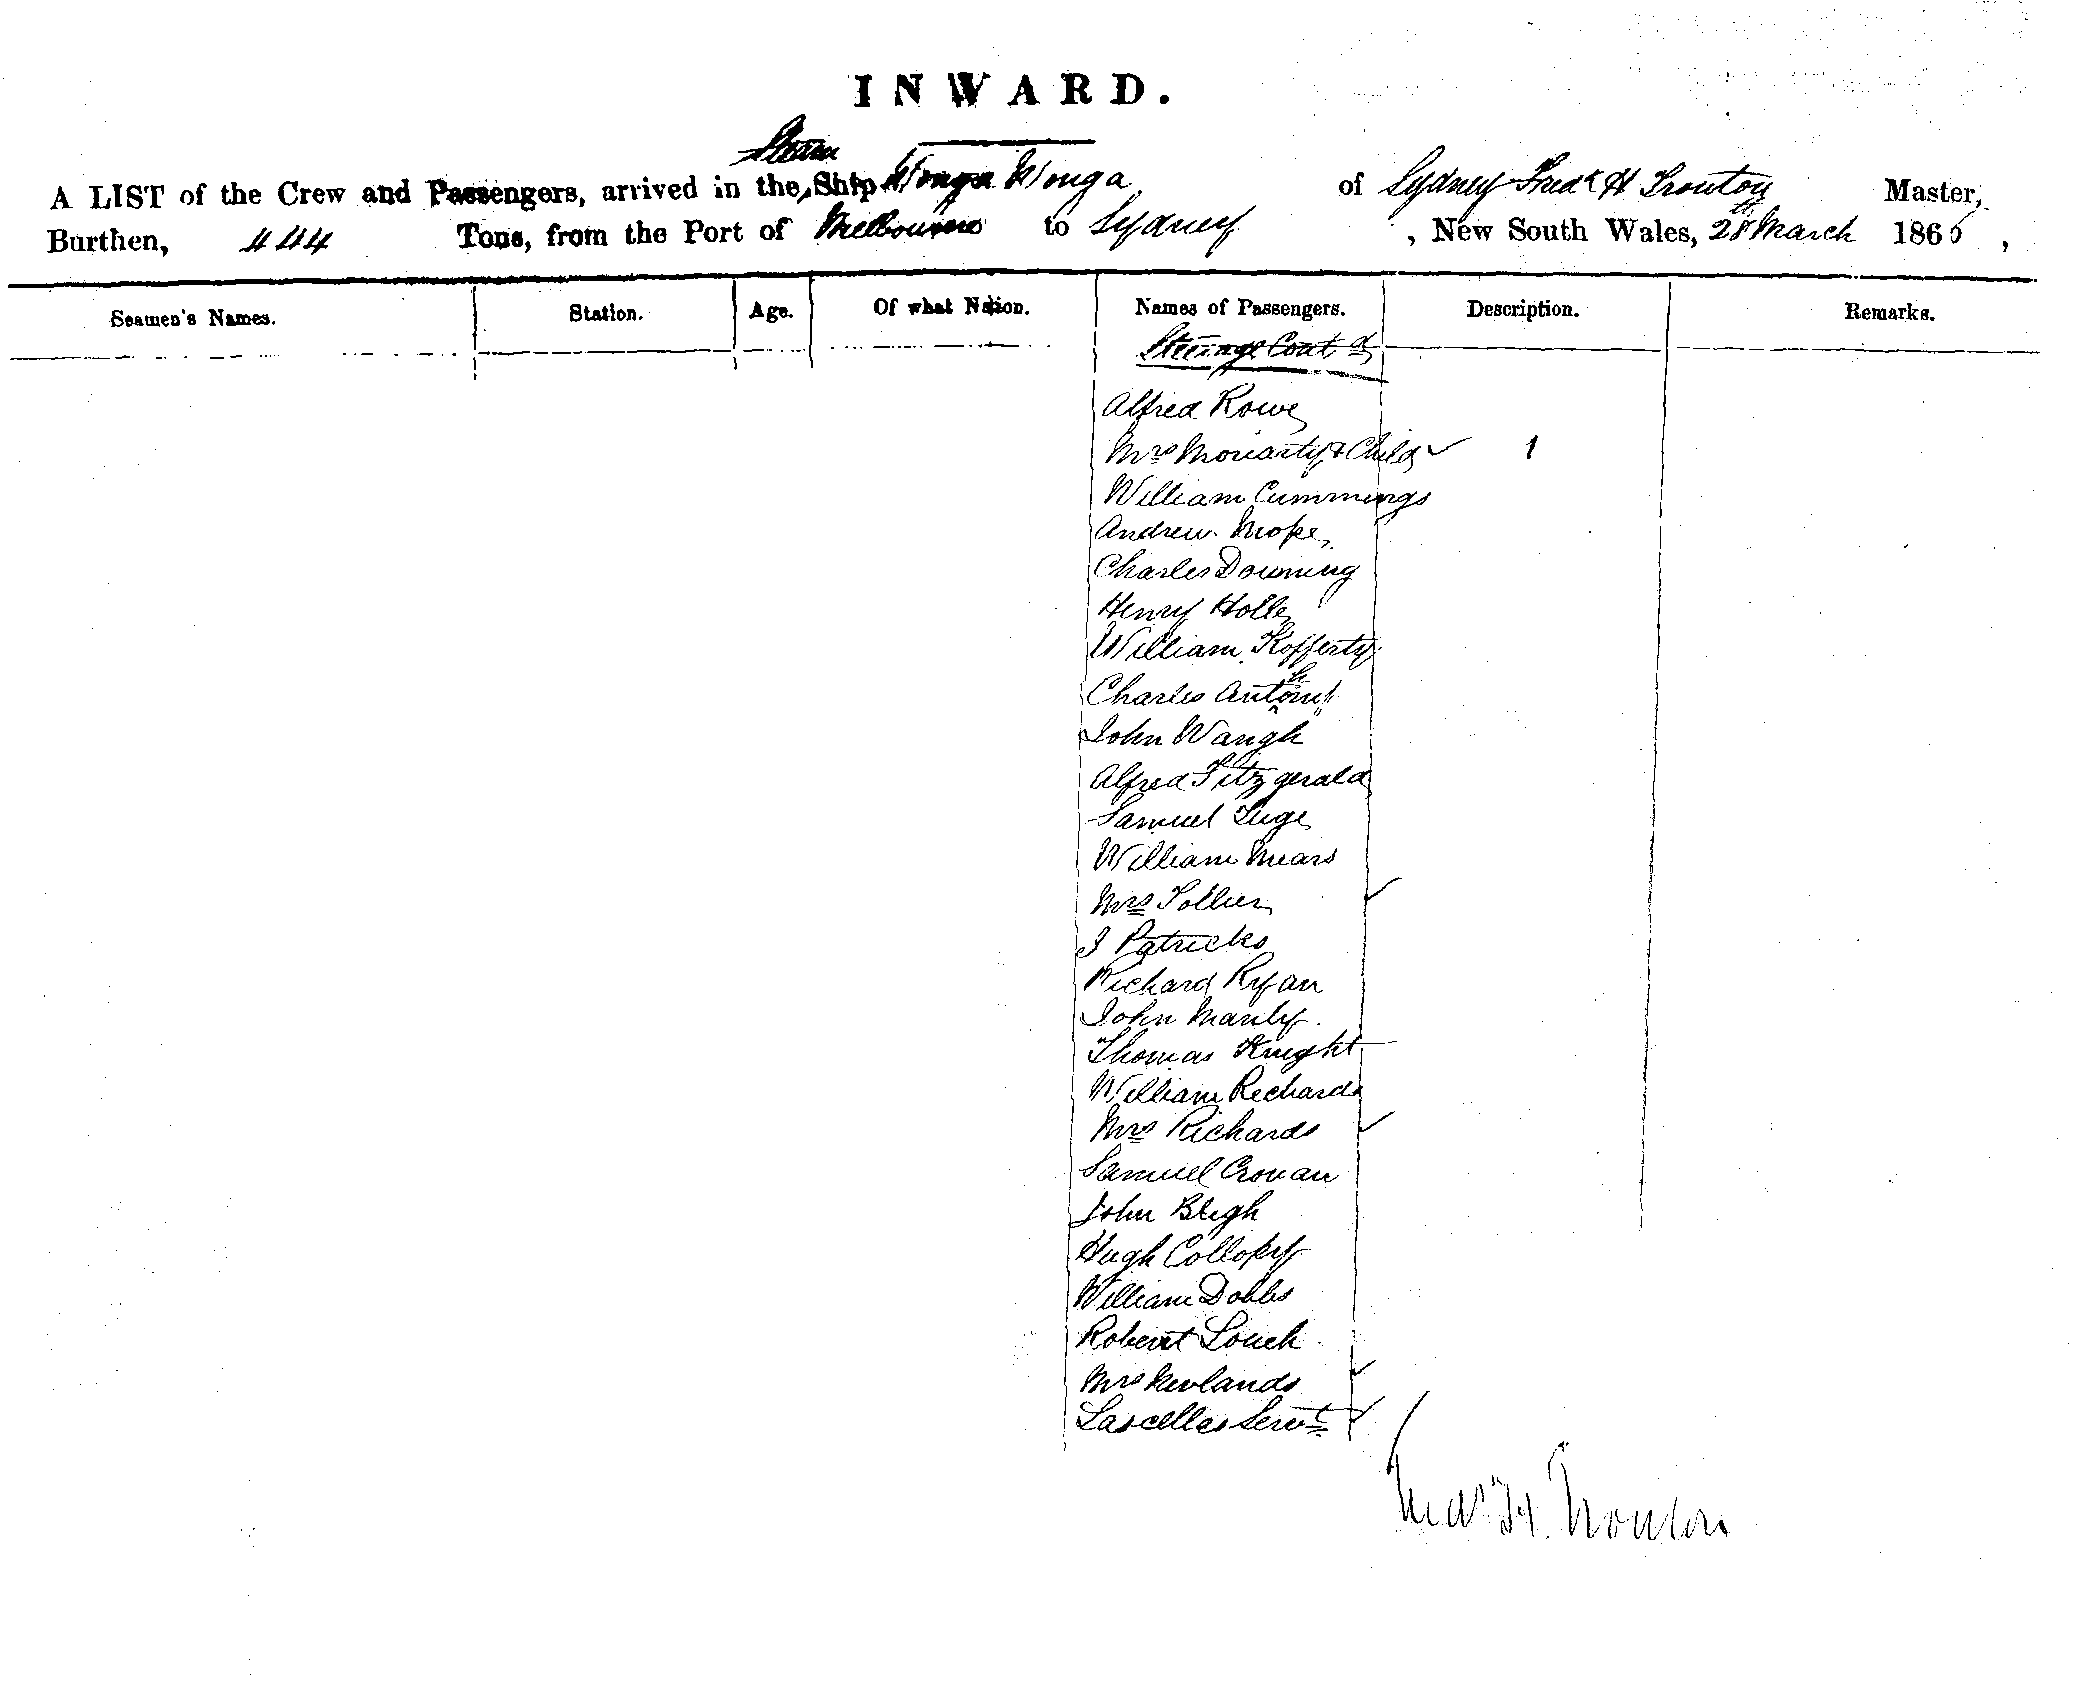 INWARD.
Steam
A LIST of the Crew and Passengers, arrived in the Ship Wonga Wonga of Sydney Fredk H Trouton Master,
Burthen, 444 Tons, from the Port of Melbourne to Sydney, New South Wales, 28th March 1865,
Seamen's Names. Station. Age. Of what Nation. Names of Passengers. Description. Remarks.
Steerage Contd
Alfred Rowe
Mrs Moriarty & Child 1
William Cummings
Andrew
Charles Downing
Henry Holle
William Rofferty
Charles Anthony
John Waugh
Alfred Fitzgerald
Samuel
William Mears
Mrs
J Patricks
Richard Ryan
John Manly.
Thomas Knight
William Richards
Mrs Richards
Samuel Cronan
John Bligh
Hugh Collopy
William Dobbs
Robert Louch
Mrs Newlands
Lascelles Servt
Fredk H. Trouton